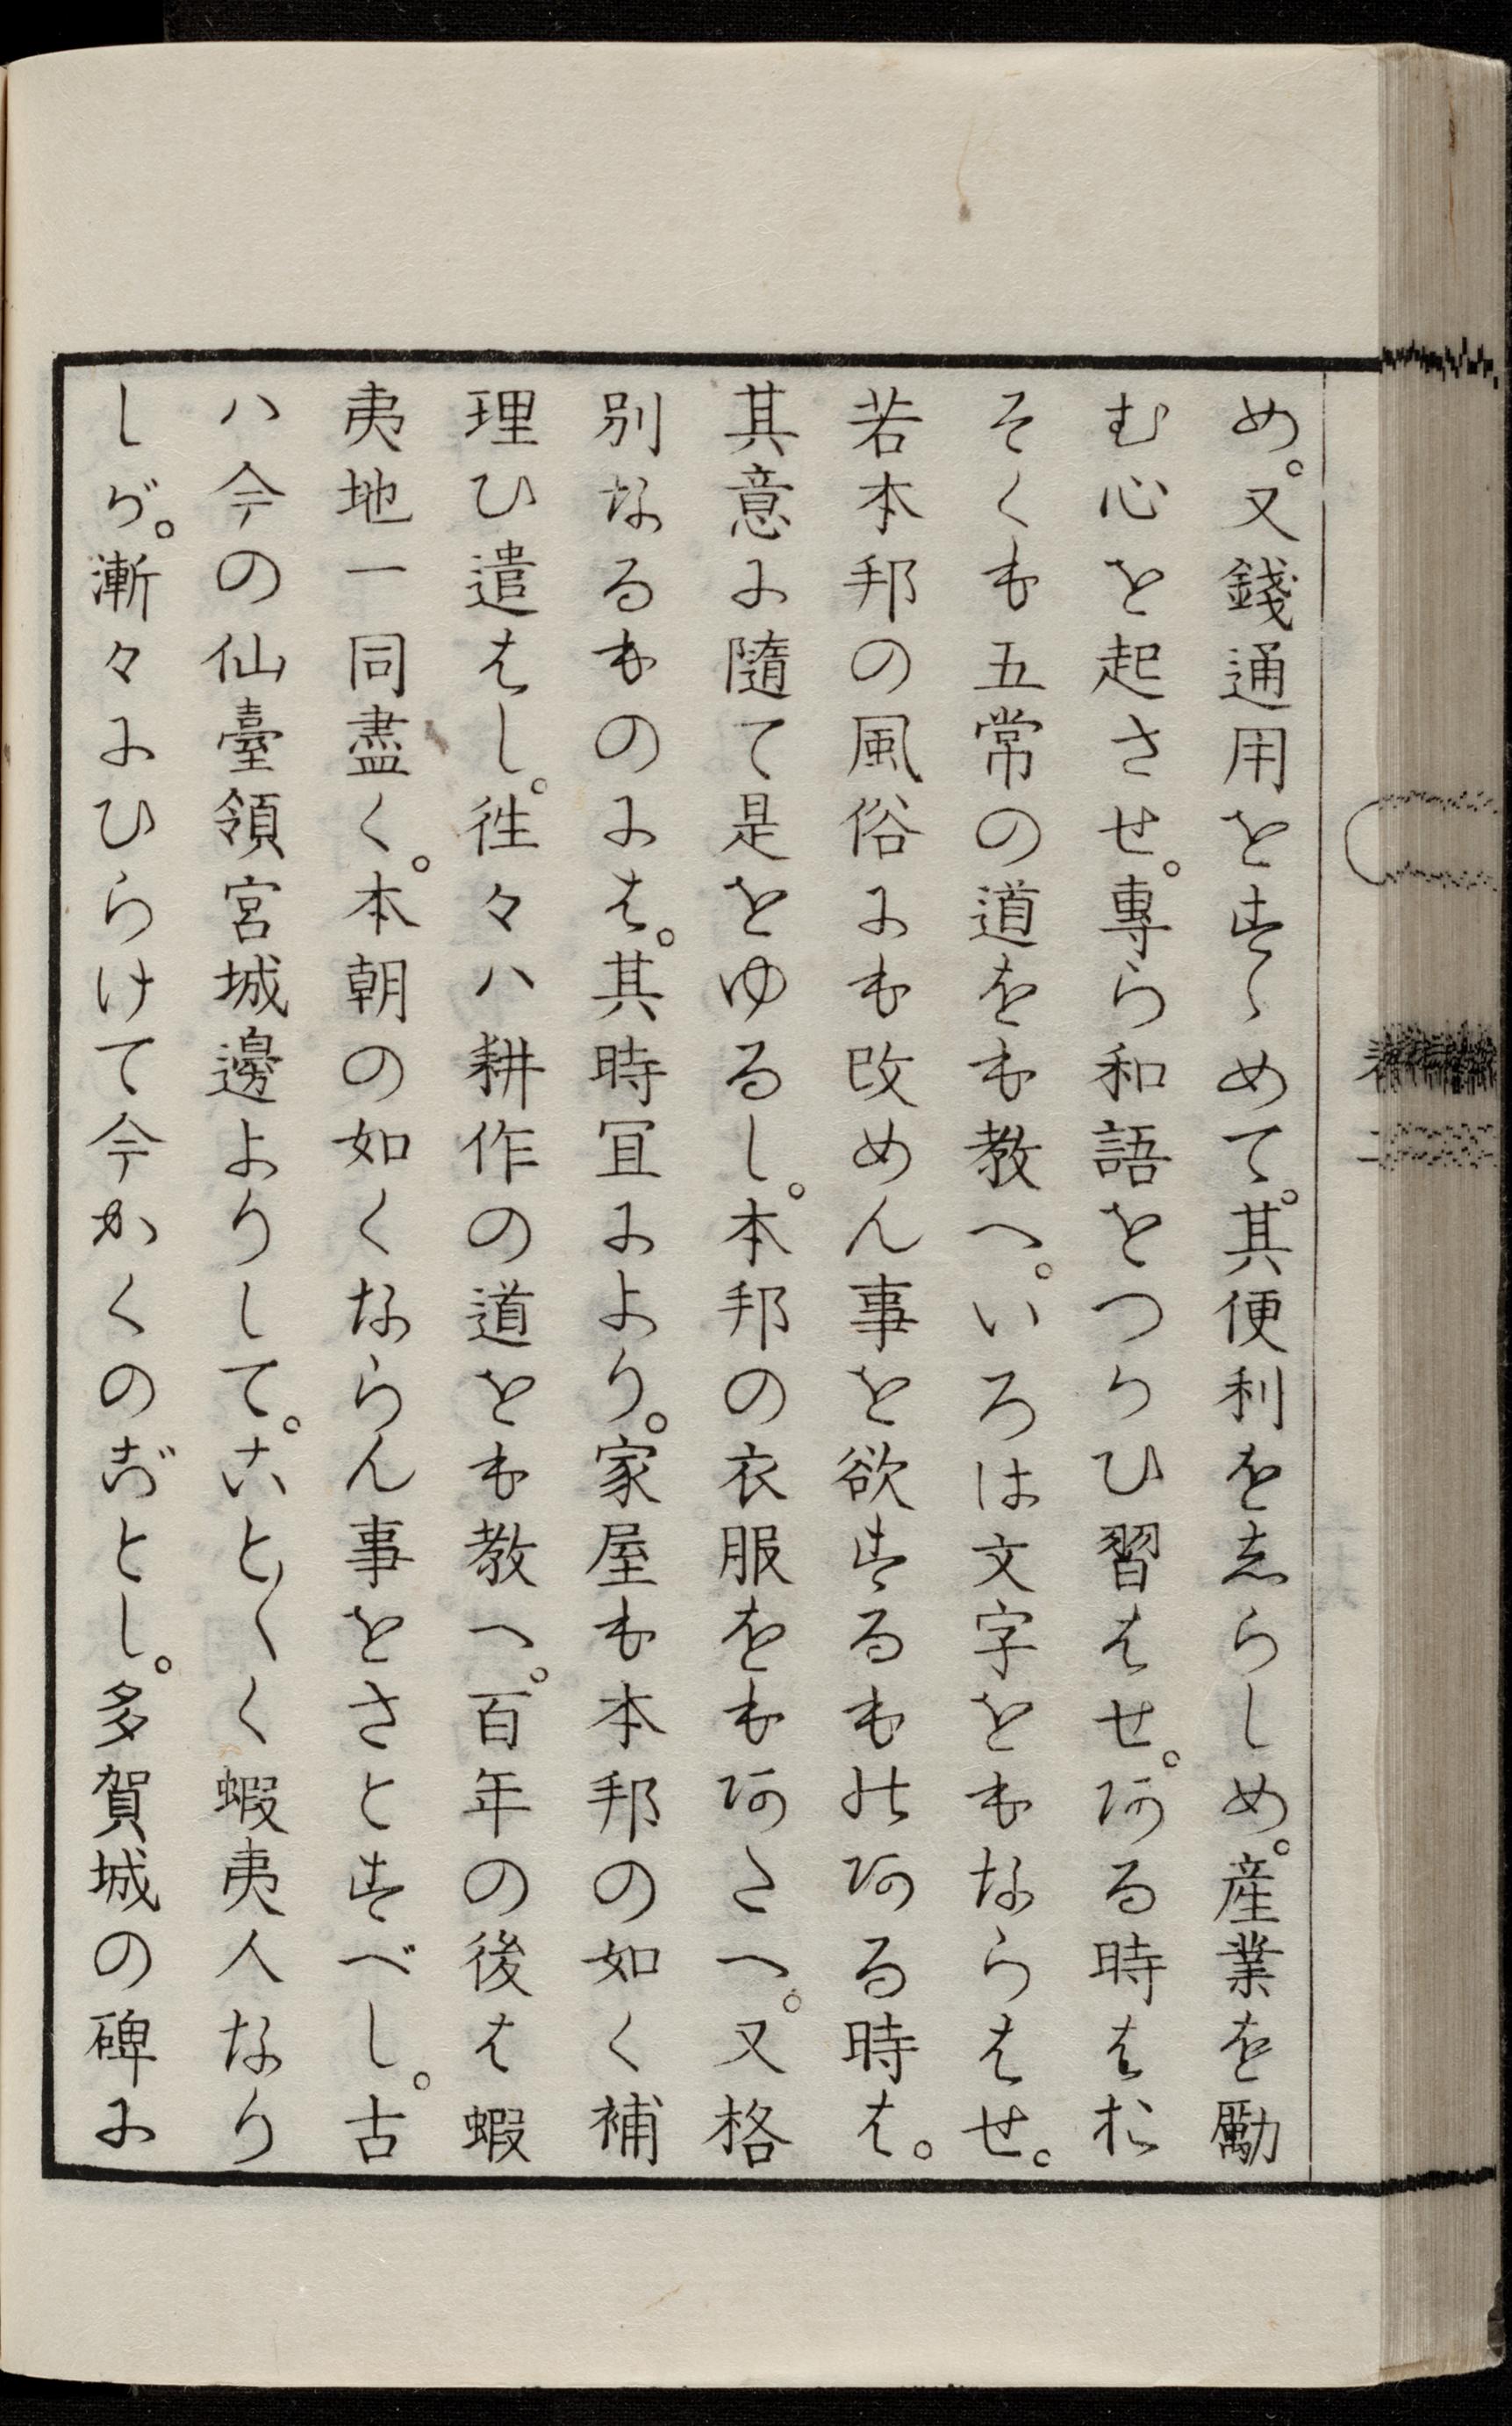 め。又錢通用をすゝめて。其便利をしらしめ。産業を勵
む心を起させ。專ら和語をつかひ習はせ。ある時はお
そくも五常の道をも教へ。いろは文字をもならはせ。
若本邦の風俗にも改めん事を欲するものある時は。
其意に隨て是をゆるし。本邦の衣服をもあたへ。又格
別なるものには。其時冝により。家屋も本邦の如く補
理ひ遣はし。徃々ハ耕作の道をも教へ。百年の後は蝦
夷地一同盡く。本朝の如くならん事をさとすべし。古
ハ今の仙臺領宮城邊よりして。こと〱く蝦夷人なり
しが。漸々にひらけて今かくのごとし。多賀城の碑に